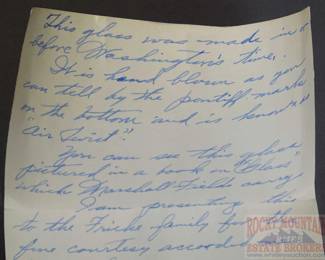 This glass was made in or
before Washington's time.
It is hand blown as you
can tell by the pontiff marks
on the bottom and is known as
"Air Twist."
You can see this glass
pictured in a book on "Glass"
which Marshall Fields carry.
I am presenting this
to the Fricke family for the
fine courtesy accorded
ROCKY MOUNTAIN
ESTATE BROKERS